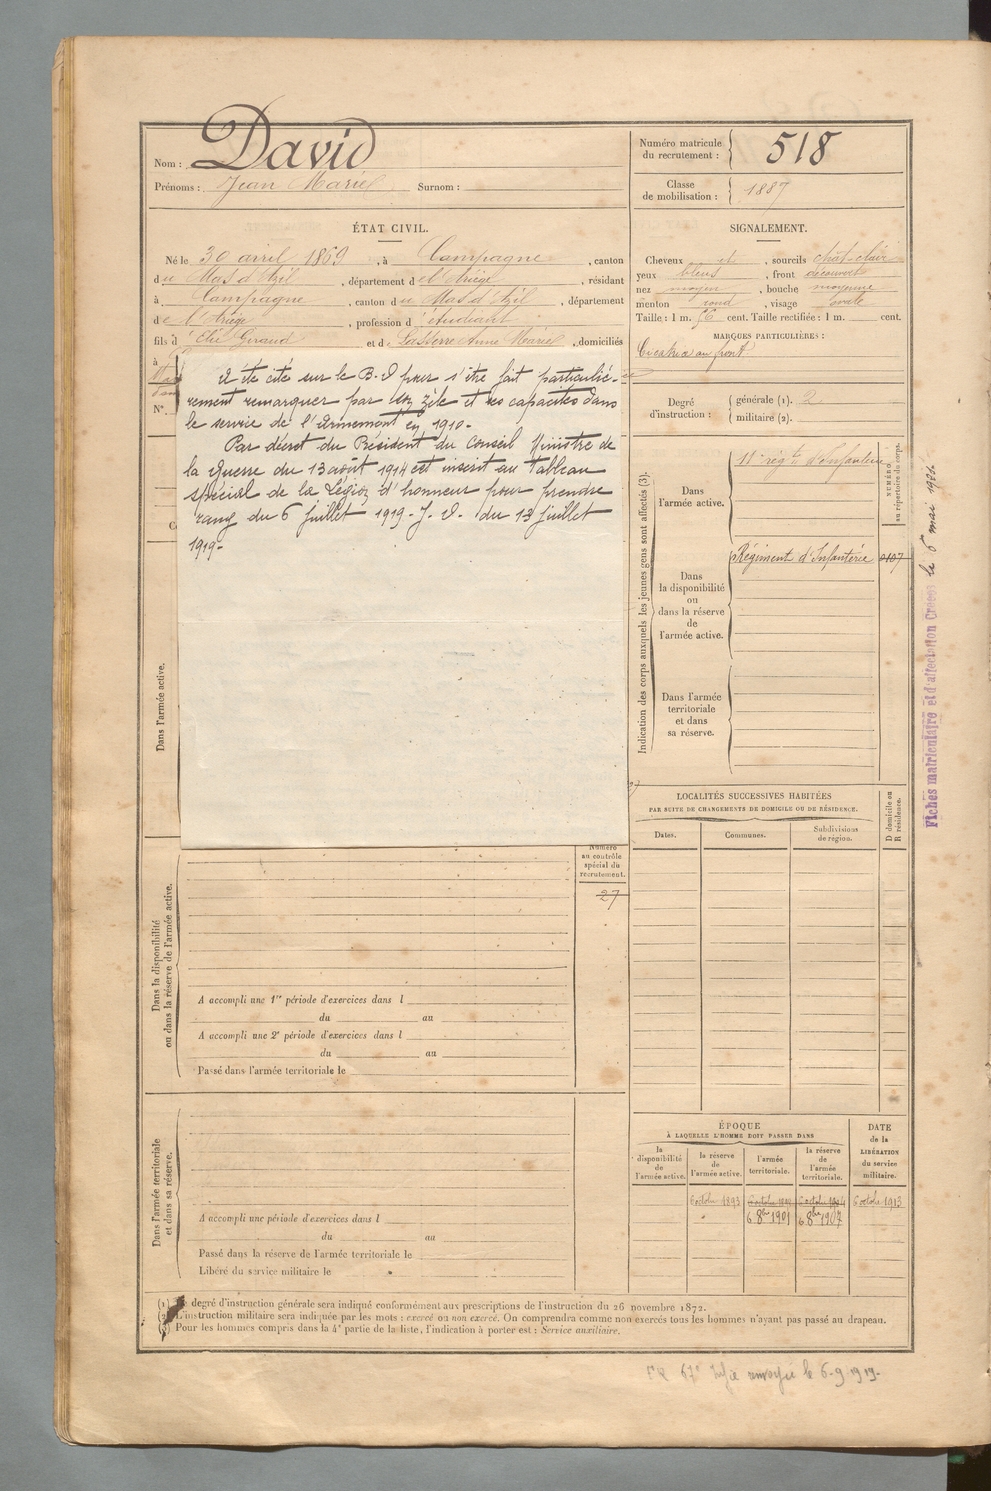 Nom : David
Prénoms : Jean Marie Surnom :
Numéro matricule du recrutement : 518
Classe de mobilisation : 1887
ÉTAT CIVIL.
Né le 30 avril 1869, à Campagne, canton
du Mas d'Azil, département de l'Ariège, résidant
à Campagne, canton du Mas d'Azil, département
de l'Ariège, profession d'étudiant
fils d'Elie Giraud et de Lasserre Anne Marie, domiciliés
à
N°.
Il été cité sur le B.O pour s'être fait particuliè-
rement remarquer par son zèle et ses capacités dans
le service de l'Armement en 1910-
Par décret du Président du Conseil Ministre de
la Guerre du 13 août 1914 est inscrit au Tableau
spécial de la Légion d'honneur pour prendre
rang du 6 juillet 1919- J.O. du 13 juillet
1919-
Dans l'armée active.
SIGNALEMENT.
Cheveux et, sourcils chât-clair
yeux bleus, front découvert
nez moyen, bouche moyenne
menton rond, visage ovale
Taille : 1 m. 56 cent. Taille rectifiée : 1 m. cent.
MARQUES PARTICULIÈRES :
Cicatrice au front
Degré d'instruction : générale (1). 2
militaire (2).
Indication des corps auxquels les jeunes gens sont affectés (3).
Dans
l'armée active.
11e régt d'Infanterie
NUMÉRO
au répertoire du corps.
Dans
la disponibilité
ou
dans la réserve
de
l'armée active.
Régiment d'Infanterie
Dans l'armée
territoriale
et dans
sa réserve.
Fiches matriculaire et d'affectation Créées le 6 mai
LOCALITÉS SUCCESSIVES HABITÉES
PAR SUITE DE CHANGEMENTS DE DOMICILE OU DE RÉSIDENCE.
Dates.
Communes.
Subdivisions
de région.
D domicile ou
R résidence.
Numéro
au contrôle
spécial du
recrutement.
27
Dans la disponibilité
ou dans la réserve de l'armée active.
A accompli une 1re période d'exercices dans l
du au
A accompli une 2e période d'exercices dans l
du au
Passé dans l'armée territoriale le
Dans l'armée territoriale
et dans sa réserve.
A accompli une période d'exercices dans l
du au
Passé dans la réserve de l'armée territoriale le
Libéré du service militaire le
ÉPOQUE
À LAQUELLE L'HOMME DOIT PASSER DANS
la
disponibilité
de
l'armée active.
la réserve
de
l'armée active.
l'armée
territoriale.
la réserve
de
l'armée
territoriale.
DATE
de la
LIBÉRATION
du service
militaire.
6 octobre 1893
6 octobre 1913
6 8bre 1901
6 8bre 1907
(1) Le degré d'instruction générale sera indiqué conformément aux prescriptions de l'instruction du 26 novembre 1872.
(2) L'instruction militaire sera indiquée par les mots : exercé ou non exercé. On comprendra comme non exercés tous les hommes n'ayant pas passé au drapeau.
(3) Pour les hommes compris dans la 4e partie de la liste, l'indication à porter est : Service auxiliaire.
envoyée le 6-9 1919-